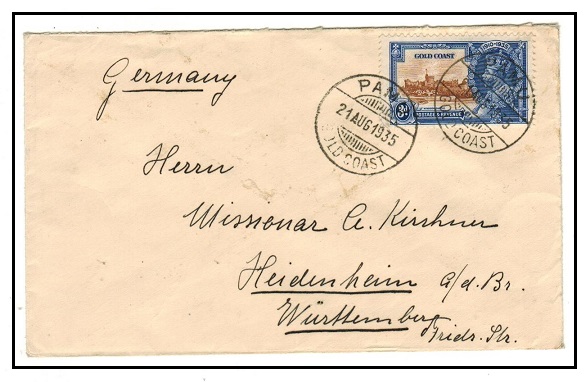 Germany
GOLD COAST
1910-1935
3d
POSTAGE & REVENUE
21 AUG 1935
GOLD COAST
GOLD COAST
Herrn
Missionar A. Kirshner
Heidenheim a/d. Br.
Württemberg
Fridr. Str.